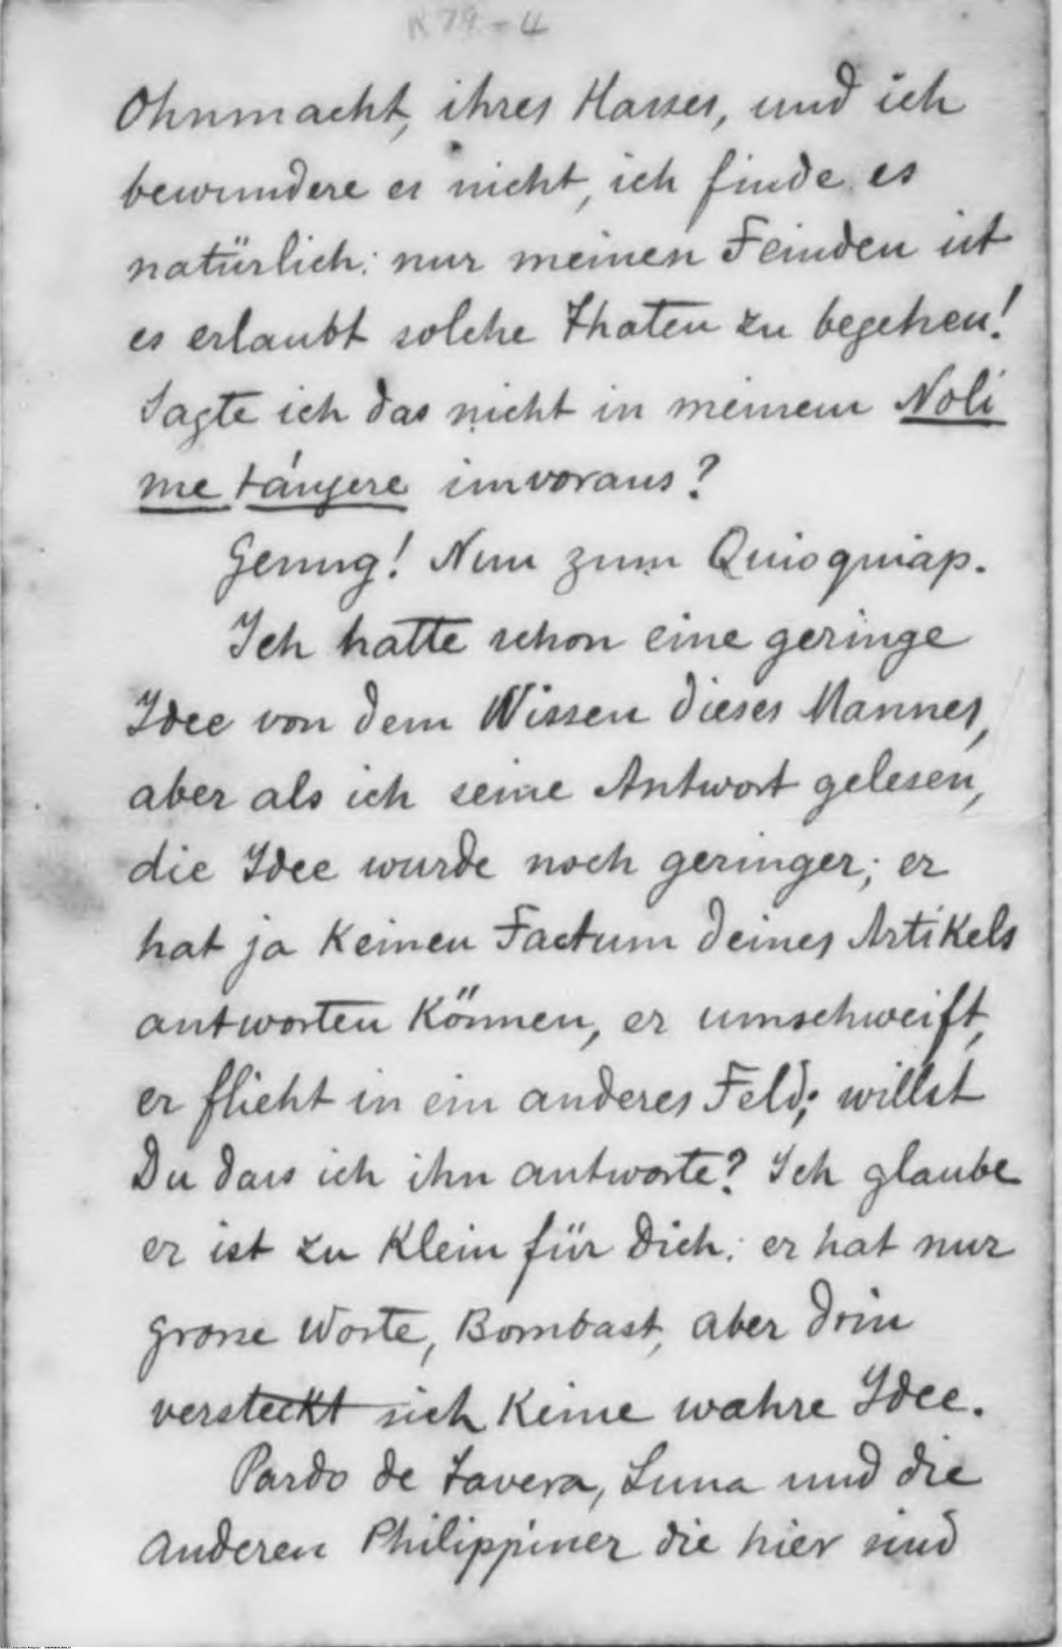 R 79-4
Ohnmacht, ihres Hasses, und ich
bewundere es nicht, ich finde es
natürlich: nur meinen Feinden ist
es erlaubt solche Thaten zu begehen!
Sagte ich das nicht in meinem Noli
me tángere imvoraus?
Genug! Nun zum Quioquiap.
Ich hatte schon eine geringe
Idee von dem Wissen dieses Mannes,
aber als ich seine Antwort gelesen,
die Idee wurde noch geringer; er
hat ja keinen Factum deines Artikels
antworten können, er umschweift,
er flieht in ein anderes Feld; willst
Du dass ich ihn antworte? Ich glaube
er ist zu klein für Dich: er hat nur
grosse Worte, Bombast, aber drin
versteckt sich keine wahre Idee.
Pardo de Tavera, Luna und die
anderen Philippiner die hier sind